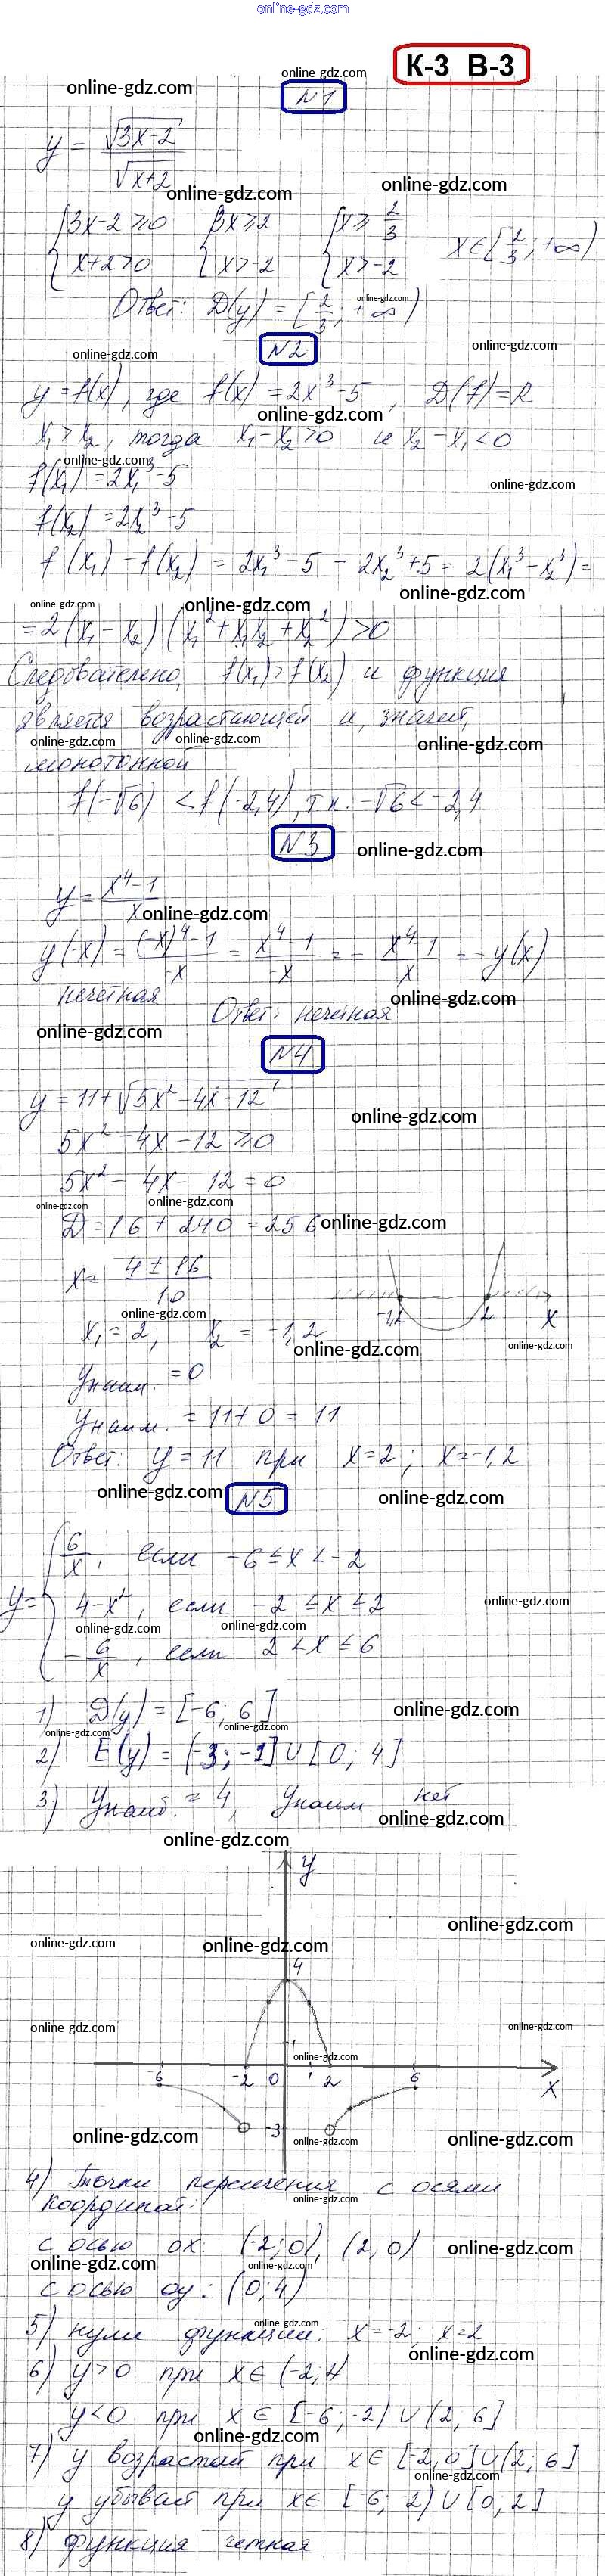 online-gdz.com
К-3 В-3
online-gdz.com
online-gdz.com
N1
y = √(3x-2) / √(x+2)
online-gdz.com
online-gdz.com
{3x-2 ≥ 0 {3x ≥ 2 {x ≥ 2/3
{x+2 > 0 {x > -2 {x > -2 x ∈ [2/3; +∞)
Ответ: D(y) = [2/3; +∞)
online-gdz.com
N2
online-gdz.com
online-gdz.com
y = f(x), где f(x) = 2x³-5, D(f) = R
online-gdz.com
x₁ > x₂, тогда x₁-x₂ > 0 и x₂-x₁ < 0
online-gdz.com
f(x₁) = 2x₁³-5
online-gdz.com
f(x₂) = 2x₂³-5
f(x₁) - f(x₂) = 2x₁³-5 - 2x₂³+5 = 2(x₁³-x₂³) =
online-gdz.com
online-gdz.com
online-gdz.com
= 2(x₁-x₂)(x₁²+x₁x₂+x₂²) > 0
Следовательно, f(x₁) > f(x₂) и функция
является возрастающей и, значит,
online-gdz.com
online-gdz.com
online-gdz.com
монотонной
f(-√6) < f(-2,4), т.к. -√6 < -2,4
N3
online-gdz.com
y = (x⁴-1)/x
online-gdz.com
y(-x) = ((-x)⁴-1)/-x = (x⁴-1)/-x = - (x⁴-1)/x = -y(x)
нечетная
online-gdz.com
Ответ: нечетная
online-gdz.com
N4
y = 11+√(5x²-4x-12)
online-gdz.com
5x²-4x-12 ≥ 0
5x²-4x-12 = 0
online-gdz.com
online-gdz.com
D = 16 + 240 = 256
online-gdz.com
x = (4±16)/10
-1,2 2 x
online-gdz.com
x₁ = 2; x₂ = -1,2
online-gdz.com
online-gdz.com
yнаим. = 0
yнаим. = 11+0 = 11
Ответ: y = 11 при x=2; x=-1,2
online-gdz.com
N5
online-gdz.com
6/x, если -6 ≤ x < -2
y = { 4-x², если -2 ≤ x ≤ 2
online-gdz.com
online-gdz.com
online-gdz.com
-6/x, если 2 < x ≤ 6
1) D(y) = [-6; 6]
online-gdz.com
online-gdz.com
online-gdz.com
2) E(y) = (-3; -1] ∪ [0; 4]
3) yнаиб. = 4, yнаим нет
online-gdz.com
online-gdz.com
y
online-gdz.com
online-gdz.com
online-gdz.com
4
online-gdz.com
online-gdz.com
1
online-gdz.com
-6 -2 0 1 2 6
x
-3
online-gdz.com
online-gdz.com
online-gdz.com
4) Точки пересечения с осями
online-gdz.com
координат:
с осью ox: (-2; 0), (2; 0)
online-gdz.com
online-gdz.com
online-gdz.com
с осью oy: (0; 4)
online-gdz.com
5) нули функции: x=-2; x=2
online-gdz.com
6) y>0 при x ∈ (-2,
y<0 при x ∈ [-6; -2) ∪ (2, 6]
online-gdz.com
7) y возрастает при x ∈ [-2,0] ∪ (2; 6]
online-gdz.com
y убывает при x ∈ [-6; -2) ∪ [0, 2]
8) функция четная